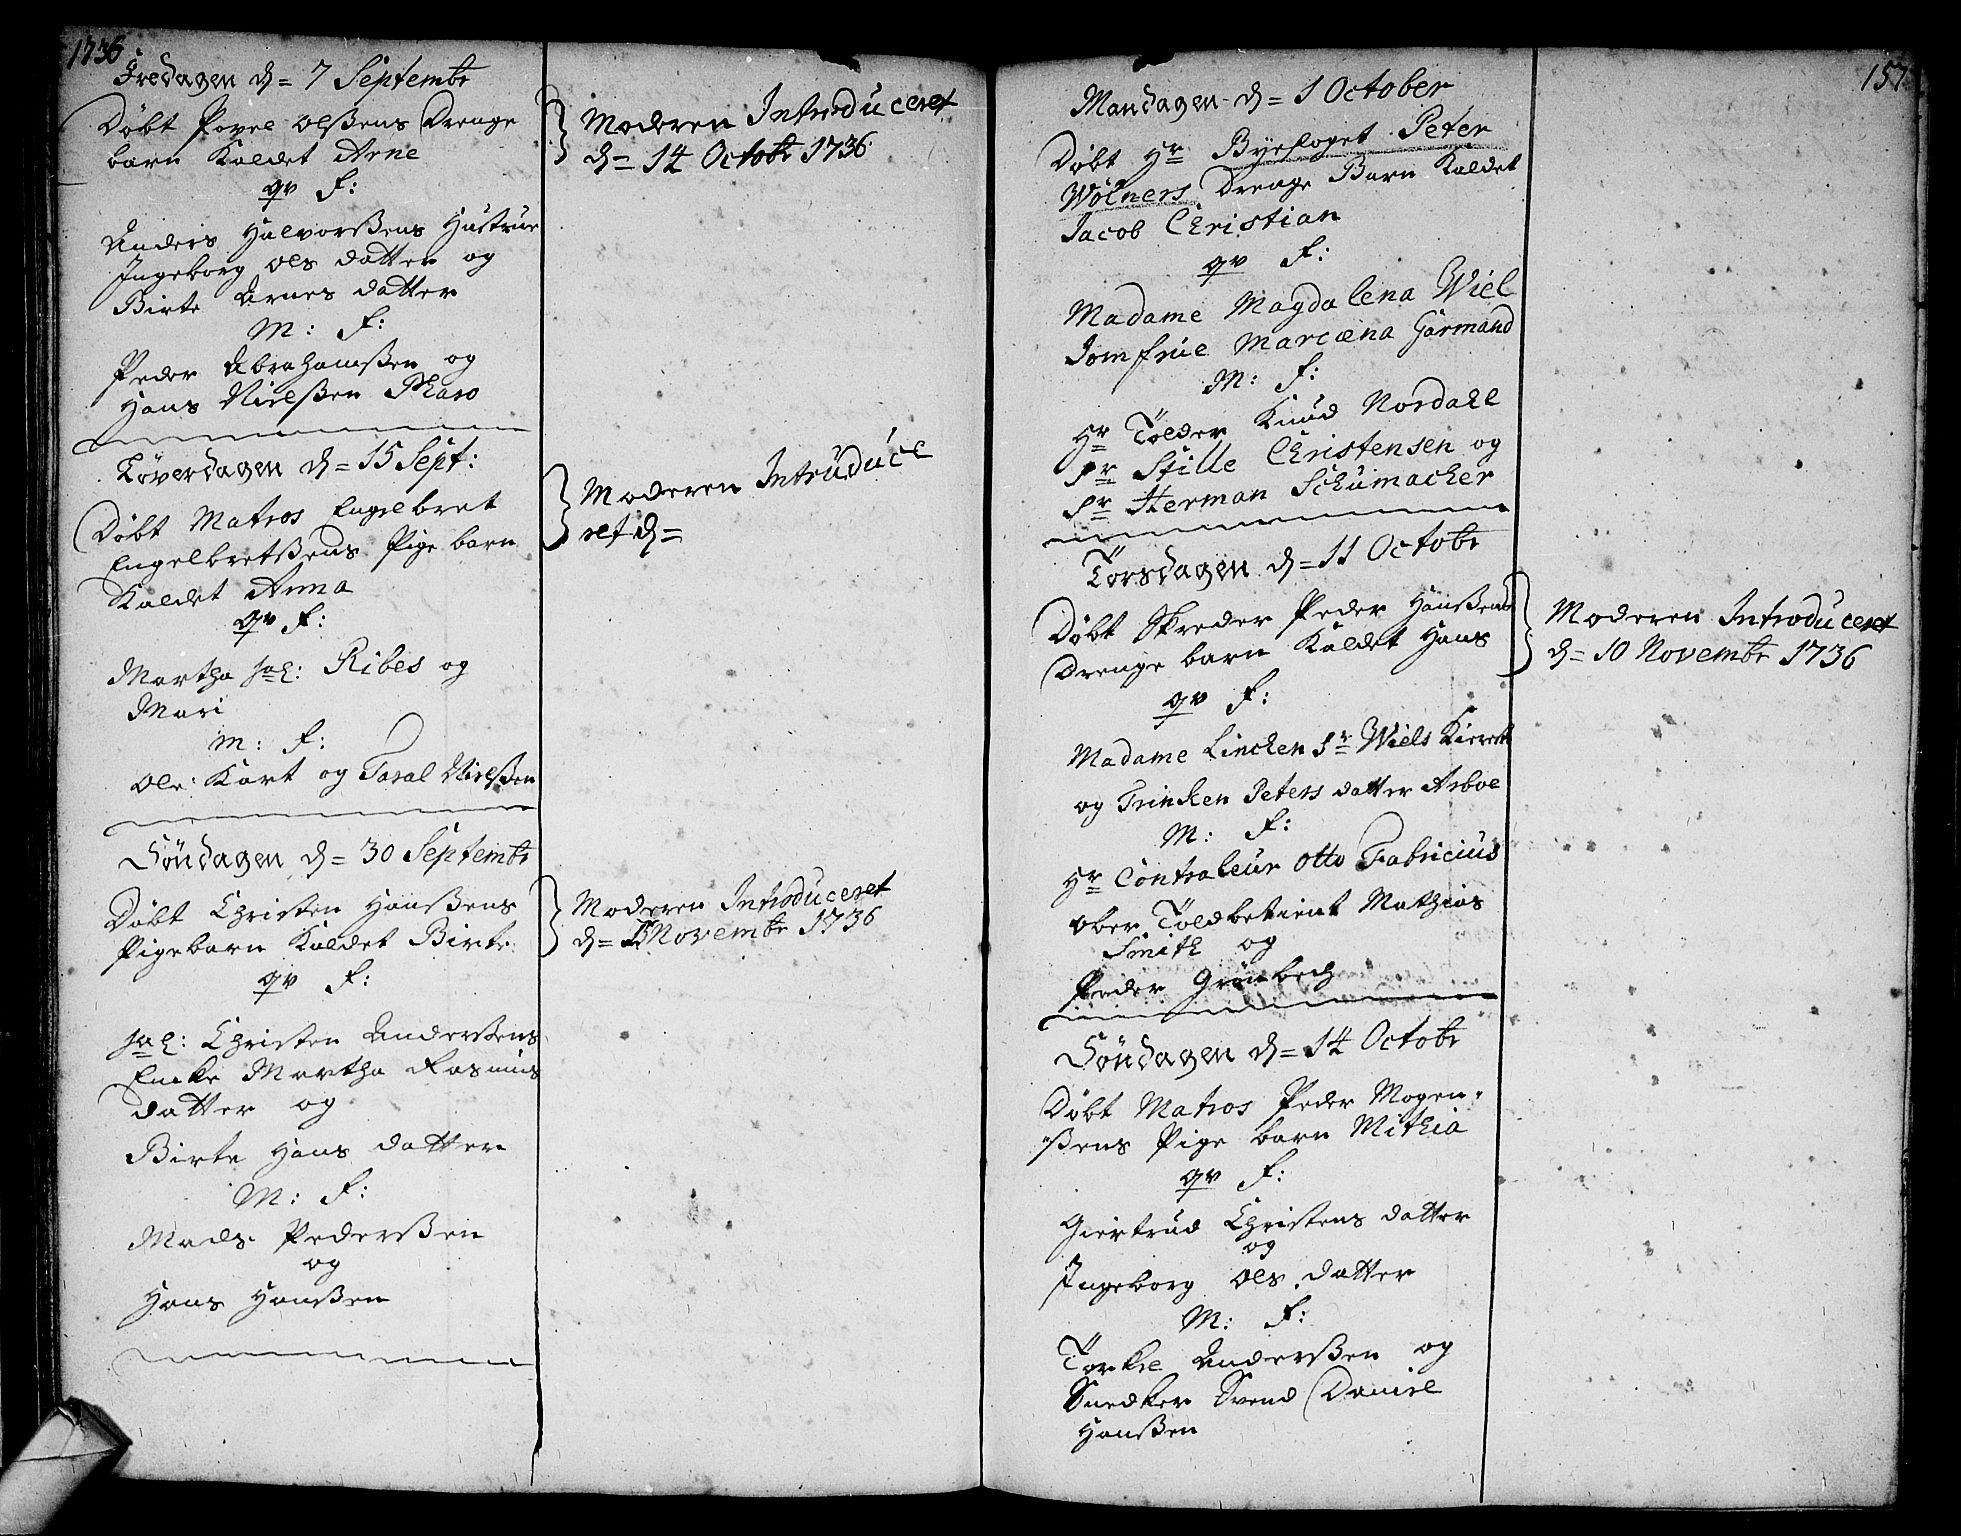 1736
Fredagen d= 7 Septembr
Døbt Povel Olßens Drenge
barn Kaldet Arne
qv F:
Anders Halvorßens Hustrue
Ingeborg Ols datter og
Birte Arnes datter
M: F:
Peder Abrahamßen og
Hans Nielßen Pharo
Løverdagen d= 15 Sept:
Døbt Matros Engelbret
Engelbretßens Pige barn
Kaldet Anna
qv F:
Martha sal: Ribes og
Mari
M: F:
Ole Kort og Taral Nielßen
Søndagen d= 30 Septembr
Døbt Christen Hanßens
Pigebarn Kaldet Birte
qv F:
sal: Christen Anderßens
Encke Martha Rasmus
datter og
Birte Hans datter
M: F:
Mads Pederßen
og
Hans Hanßen
Moderen Introduceret
d= 14 Octobr 1736
Moderen Intruduce
ret d=
Moderen Introduceret
d= Novembr 1736
157
Mandagen d= 1 October
Døbt Hr Byefoget Peter
Wölners Drenge Barn Kaldet
Jacob Christian
qv F:
Madame Magdalena Wiel
Jomfrue Marcæna Garmand
M: F:
Hr Tolder Knud Nordahl
Sr Stille Christensen og
Sr Herman Schumacher
Torsdagen d= 11 Octobr
Døbt Skreder Peder Hanßens
Drenge barn Kaldet Hans
qv F:
Madame Lincken Sr Wiels
og Trinken Peters datter Arboe
M: F:
Hr Contraleur Otto Fabricius
Ober Toldbetient Mathias
Smith og
Peder Grönbech
Søndagen d= 14 Octobr
Døbt Matros Peder Mogen-
ßens Pige barn Mithia
qv F:
Giertrud Christens datter
og
Ingeborg Ols datter
M: F:
Torkel Anderßen og
Snedker Svend Daniel
Hanßen
Moderen Introduceret
d= 10 Novembr 1736